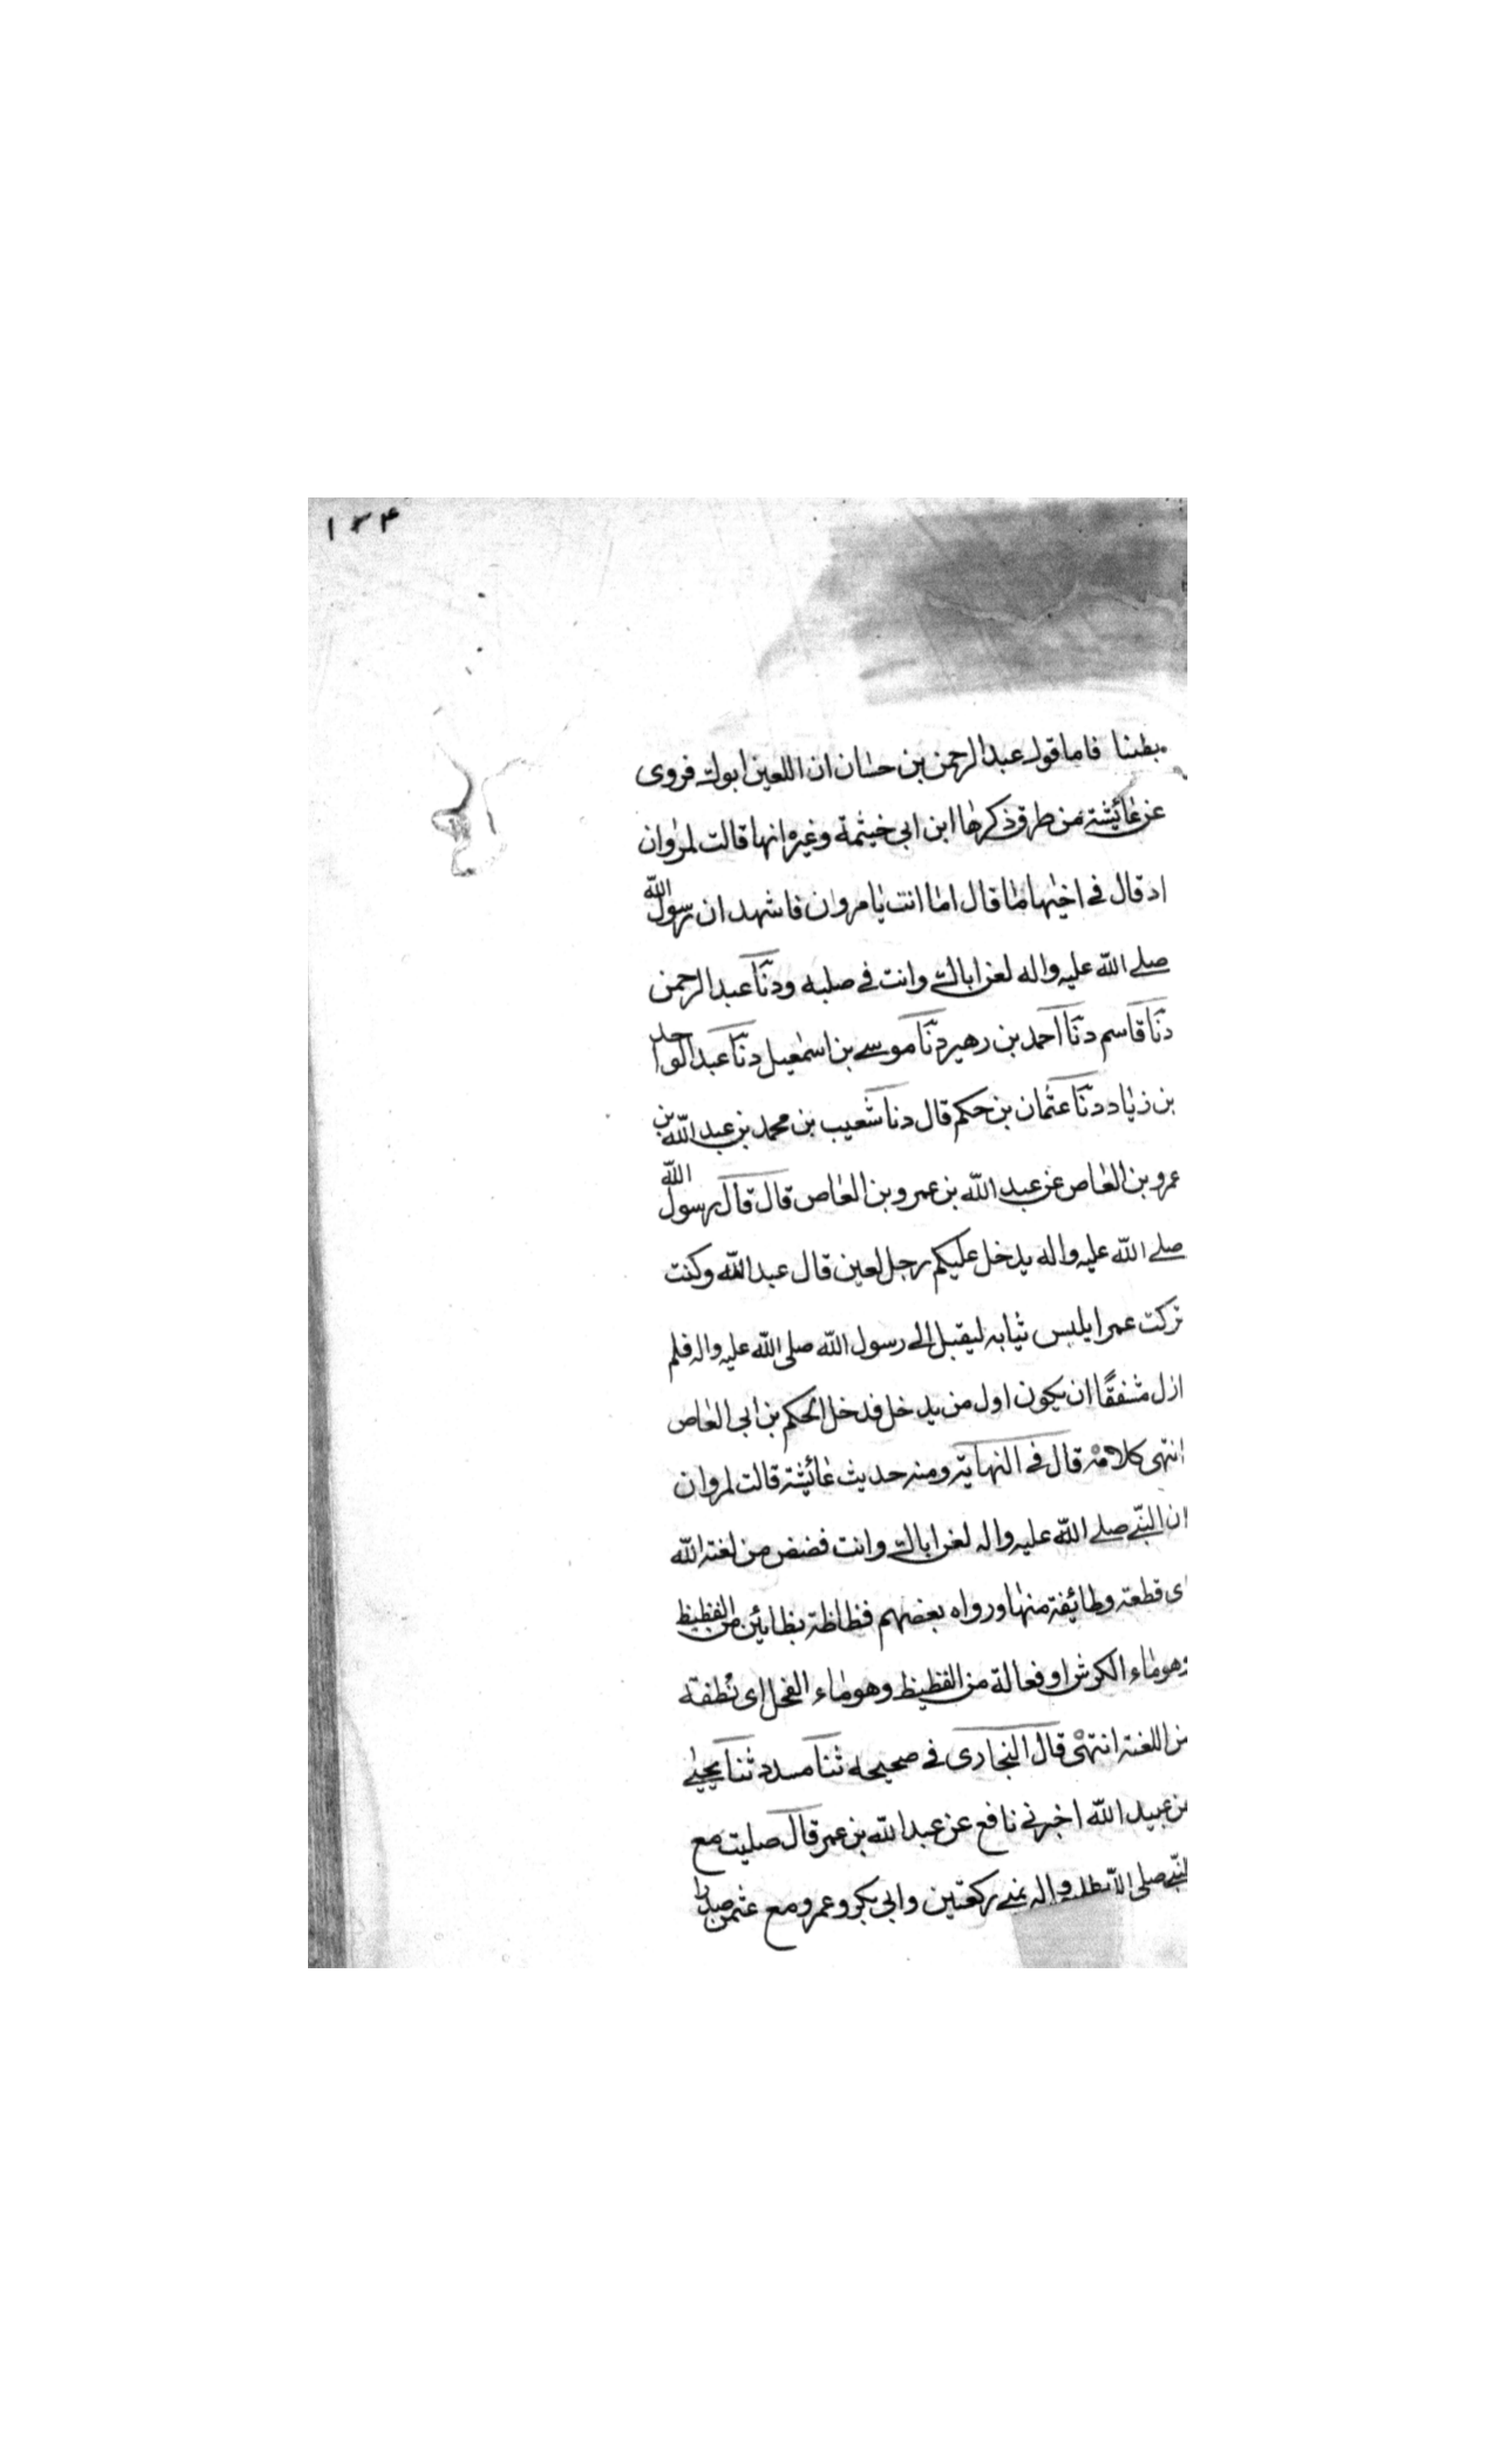 ۱۲۴
بطنا فاما قول عبد الرحمن بن حسان ان اللعين ابوك فروى
عن عائيشة من طرق ذكرها ابن ابي خيثمة وغيره انها قالت لمروان
اذ قال في اخيها ما قال اما انت يا مروان فاشهد ان رسول الله
صلى الله عليه واله لعن اباك وانت في صلبه ودنا عبد الرحمن
دنا قاسم دنا احمد بن زهير دنا موسى بن اسمعيل دنا عبد الواحد
بن زياد دنا عثمان بن حكم قال دنا شعيب بن محمد بن عبد الله بن
عمرو بن العاص عن عبد الله بن عمرو بن العاص قال قال رسول الله
صلى الله عليه واله يدخل عليكم رجل لعين قال عبد الله وكنت
تركت عمرا يلبس ثيابه ليقبل الى رسول الله صلى الله عليه واله فلم
ازل مشفقًا ان يكون اول من يدخل فدخل الحكم بن ابي العاص
انتهى كلامه قال في النهاية ومنه حديث عائيشة قالت لمروان
ان النبي صلى الله عليه واله لعن اباك وانت فضض من لعنة الله
اى قطعة وطائيفة منها ورواه بعضهم فظاظة بظائين من الفظيظ
وهو ماء الكرش او فعالة من الفظيظ وهو ماء الفحل اى نطفة
من اللعنة انتهى قال البخارى في صحيحه ثنا مسدد ثنا يحيى
عن عبيد الله اخبرني نافع عن عبد الله بن عمر قال صليت مع
النبي صلى الله عليه واله بمنى ركعتين وابي بكر وعمر ومع عثمن صدرا